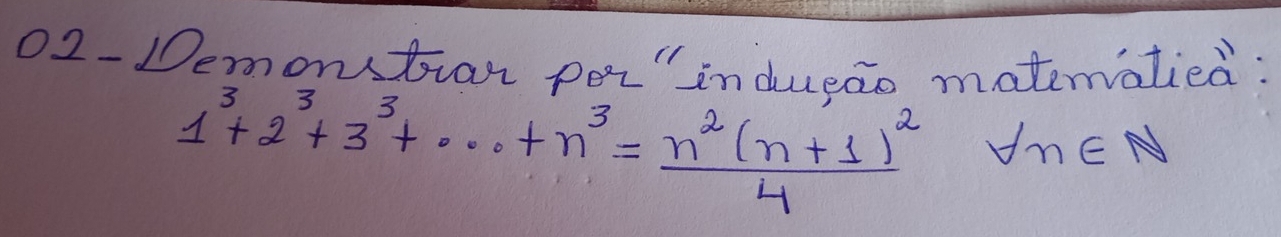 02-Demonstrar por "indução matemática":
1³+2³+3³+...+n³ = n²(n+1)²/4 ∀n∈ℕ